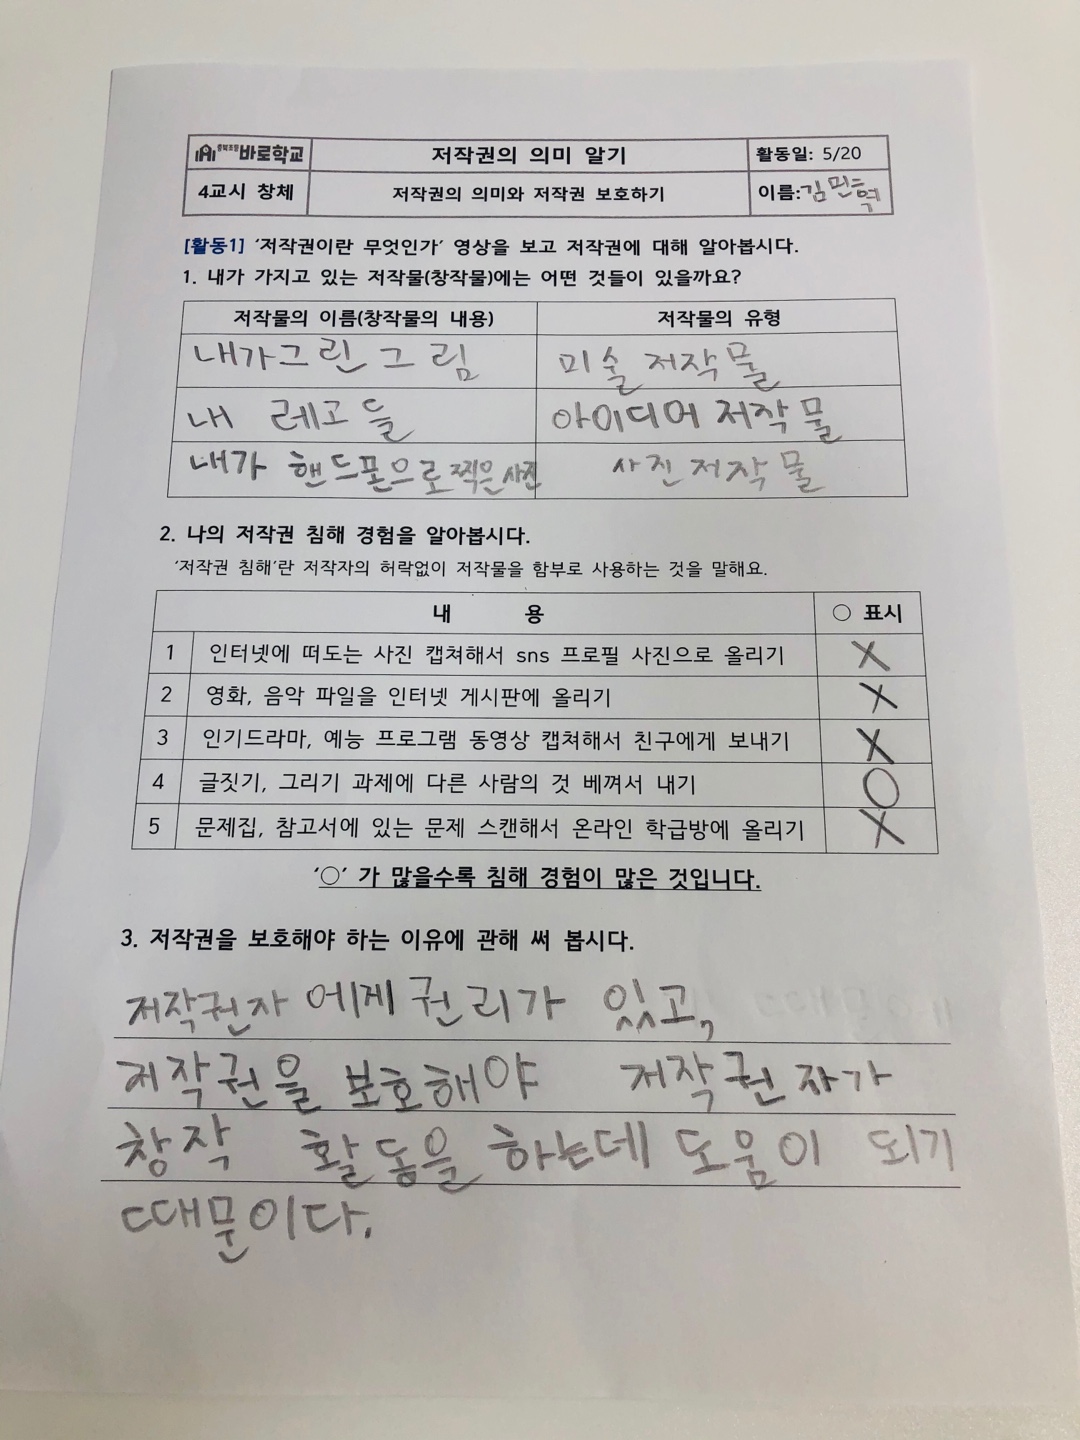 충북초등 바로학교
저작권의 의미 알기
활동일: 5/20
4교시 창체
저작권의 의미와 저작권 보호하기
이름:김민혁
[활동1] '저작권이란 무엇인가' 영상을 보고 저작권에 대해 알아봅시다.
1. 내가 가지고 있는 저작물(창작물)에는 어떤 것들이 있을까요?
저작물의 이름(창작물의 내용) 저작물의 유형
내가그린 그림 미술 저작물
내 레고들 아이디어 저작물
내가 핸드폰으로찍은사진 사진저작물
2. 나의 저작권 침해 경험을 알아봅시다.
'저작권 침해'란 저작자의 허락없이 저작물을 함부로 사용하는 것을 말해요.
내 용 ○ 표시
1 인터넷에 떠도는 사진 캡쳐해서 sns 프로필 사진으로 올리기 X
2 영화, 음악 파일을 인터넷 게시판에 올리기 X
3 인기드라마, 예능 프로그램 동영상 캡쳐해서 친구에게 보내기 X
4 글짓기, 그리기 과제에 다른 사람의 것 베껴서 내기 O
5 문제집, 참고서에 있는 문제 스캔해서 온라인 학급방에 올리기 X
'○' 가 많을수록 침해 경험이 많은 것입니다.
3. 저작권을 보호해야 하는 이유에 관해 써 봅시다.
저작권자 에게 권리가 있고,
저작권을 보호해야 저작권자가
창작 활동을 하는데 도움이 되기
때문이다.